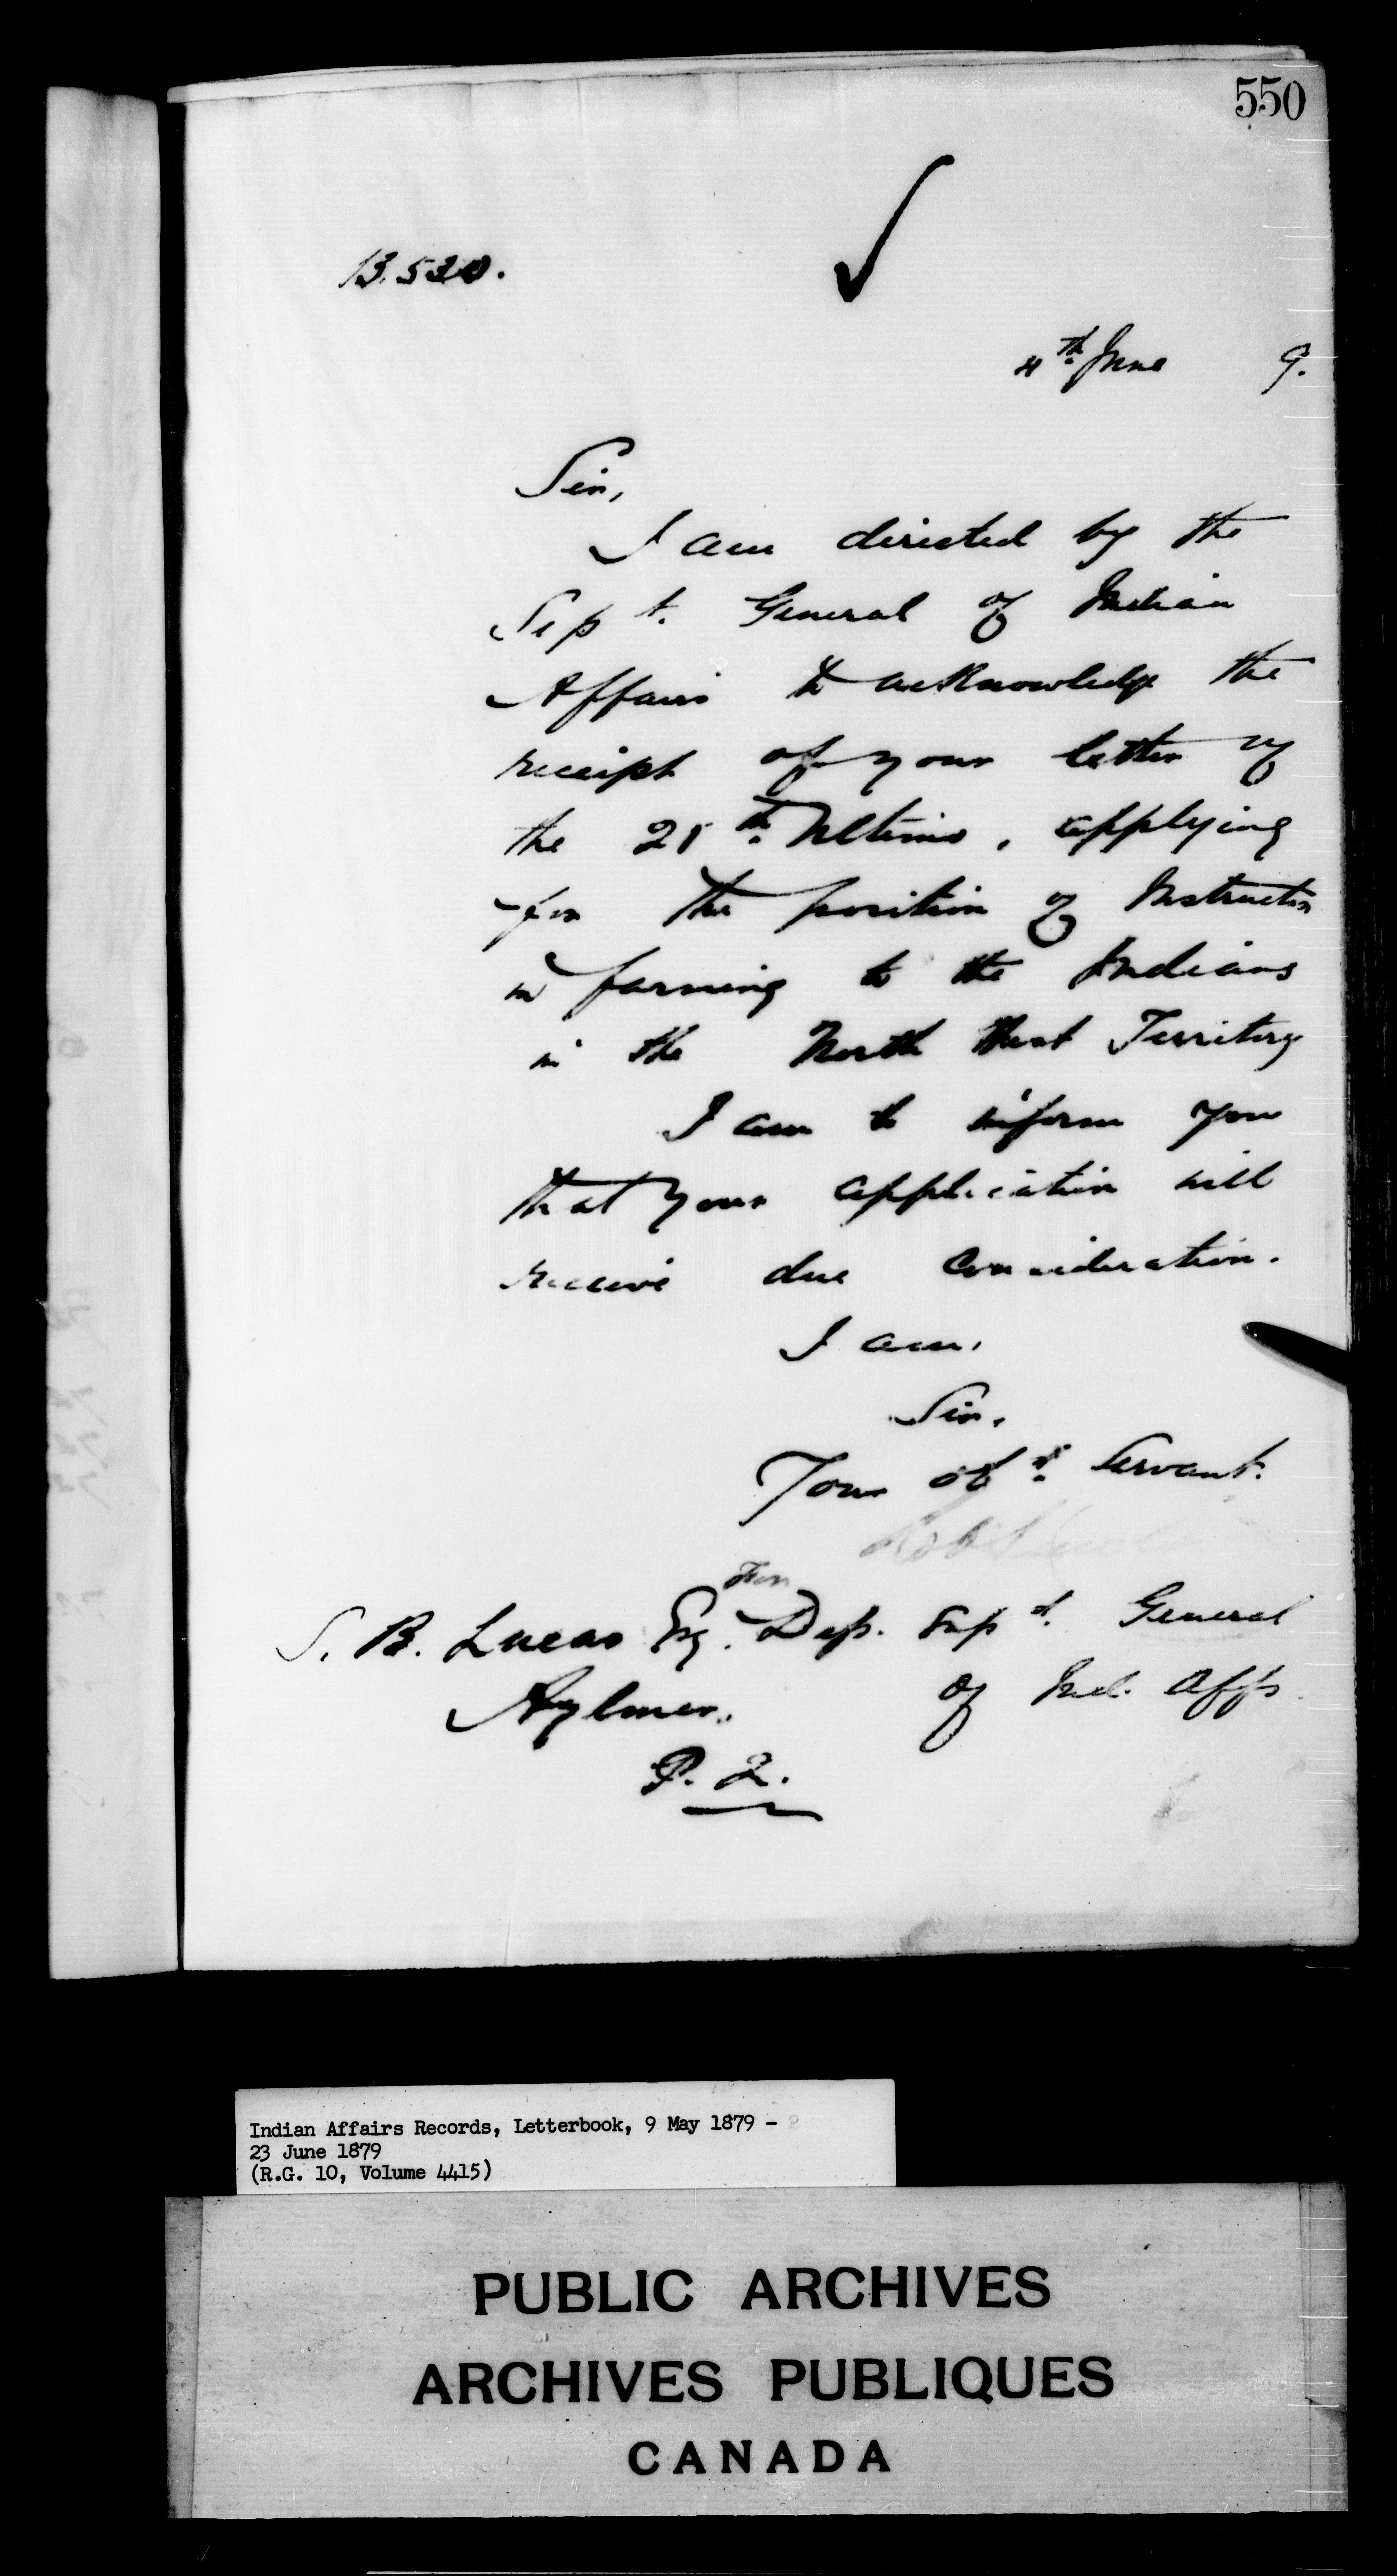 550
13.530.
4th June 9.
Sir,
I am directed by the
Sup t. General of Indian
Affairs to acknowledge the
receipt of your letter of
the 28th Ultimo, applying
for the position of Instructor
in farming to the Indians
in the North West Territory
I am to inform you
that your application will
receive due consideration.
I am,
Sir,
Your obt Servant.
For
S. B. Lucas Esq. Dep. Supt. General
Aylmer. of Ind. Affs.
P. Q.
Indian Affairs Records, Letterbook, 9 May 1879 -
23 June 1879
(R.G. 10, Volume 4415)
PUBLIC ARCHIVES
ARCHIVES PUBLIQUES
CANADA